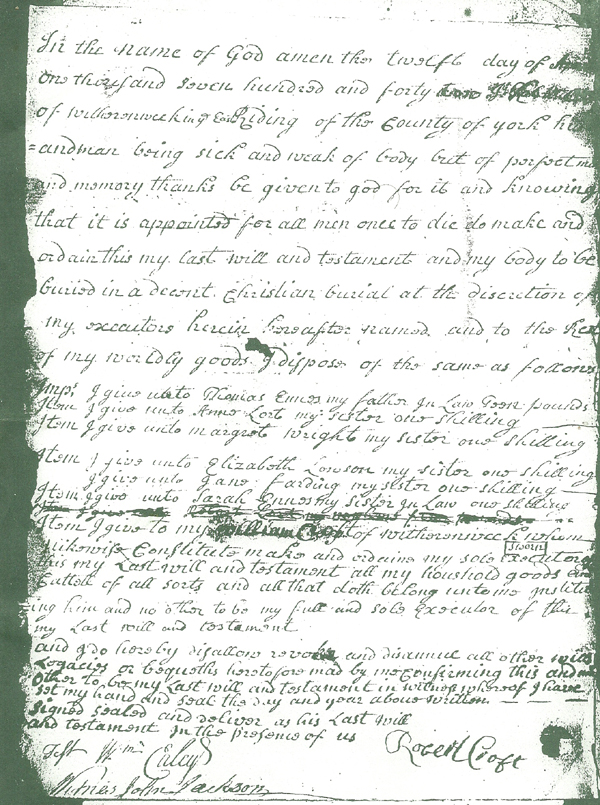 In the name of God amen the twelft day of
one thousand seven hundred and forty
of witherenweeking East Riding of the County of york hu
=andman being sick and weak of body but of perfect m
and memory thanks be given to god for it and knowing
that it is appointed for all men once to die do make and
ordain this my last will and testament and my body to be
buried in a decent Christian burial at the discretion of
my executors herein hereafter named and to the Rest
of my worldly goods I dispose of the same as follows
Imps I give unto Thomas Ennes my father In Law Teen pounds
Item I give unto Anne Lort my sister one shilling
Item I give unto margret wright my sister one shilling
Item I give unto Elizabeth Lowson my sister one shilling
I give unto Jane Farding my sister one shilling
Item I give unto Sarah Ennes my sister In Law one shilling
Item I give to my William Croft of witherenwick whom
Likewise Constitute make and ordaine my sole executor
this my Last will and testament all my houshold goods and
Cattell of all sorts and all that doth belong unto me Institu
ing him and no other to be my full and sole Executor of this
my Last will and testament
and I do hereby disallow revoke and disannul all other wills
Legacies or bequeths heretofore mad by me Confirming this and no
other to be my Last will and testament in witness whereof I have
set my hand and seal the day and year above written
signed sealed and deliver as his Last will
and testament In the presence of us
Robert Croft
Test Wm
Witnes John Jackson